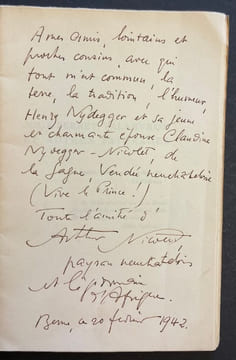 A mes amis, lointains et
proches cousins, avec qui
tout m'est commun, la
terre, la tradition, l'humeur,
Henry Nydegger et sa jeune
et charmante épouse Claudine
Nydegger-Nicolet, de
la Sagne, Vendée neuchâteloise
(Vive le Prince!)
Toute l'amitié d'
Arthur Nicolet,
paysan neuchâtelois
et légionnaire
d'Afrique.
Berne, ce 20 février 1942.